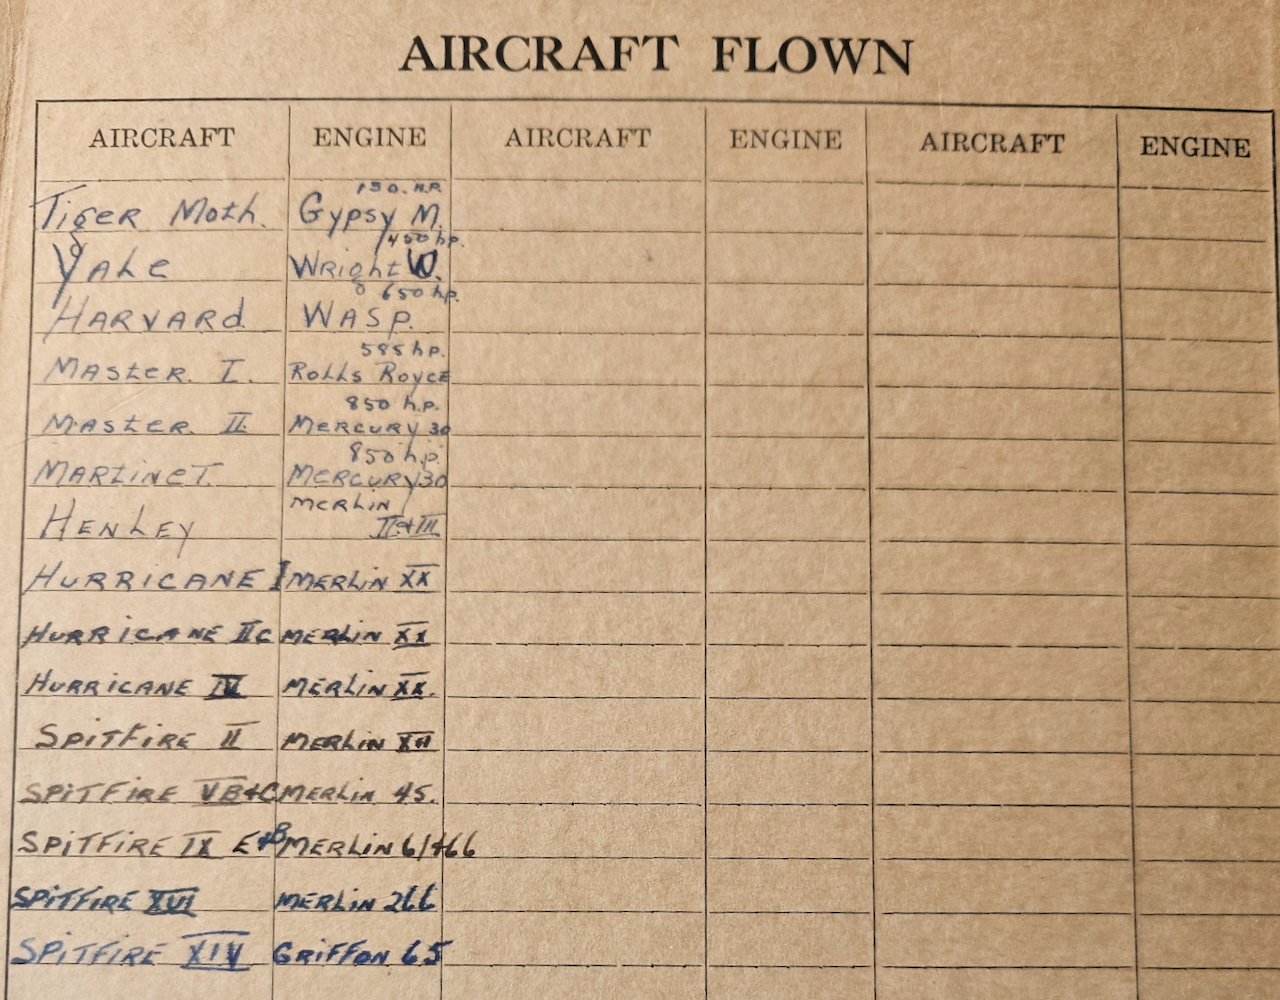 AIRCRAFT FLOWN
AIRCRAFT ENGINE AIRCRAFT ENGINE AIRCRAFT ENGINE
130. H.P.
Tiger Moth. Gypsy M.
450 hp.
Yale Wright W.
650 h.p.
HARVARd WASP.
585 h.p.
MASTER. I. Rolls Royce
850 h.p.
MASTER. II MERCURY 30
850 h.p.
MARTINET. MERCURY 30
MERLIN
HENLEY II+III
HURRICANE I MERLIN XX
HURRICANE IIC MERLIN XX
HURRICANE IV MERLIN XX.
SPITFIRE II MERLIN XII
SPITFIRE VB+C MERLIN 45.
SPITFIRE IX E+B MERLIN 61+66
SPITFIRE XVI MERLIN 266
SPITFIRE XIV GRIFFON 65